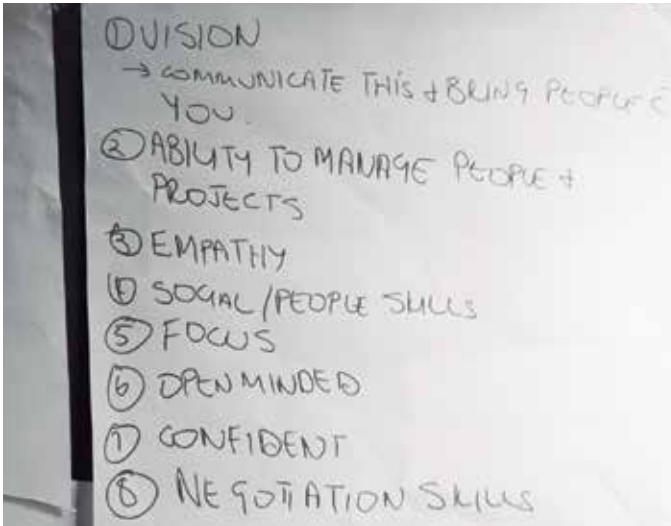 ① VISION
→ COMMUNICATE THIS + BRING PEOPLE C̄
YOU.
② ABILITY TO MANAGE PEOPLE +
PROJECTS
③ EMPATHY
④ SOCIAL/PEOPLE SKILLS
⑤ FOCUS
⑥ OPEN MINDED
⑦ CONFIDENT
⑧ NEGOTIATION SKILLS